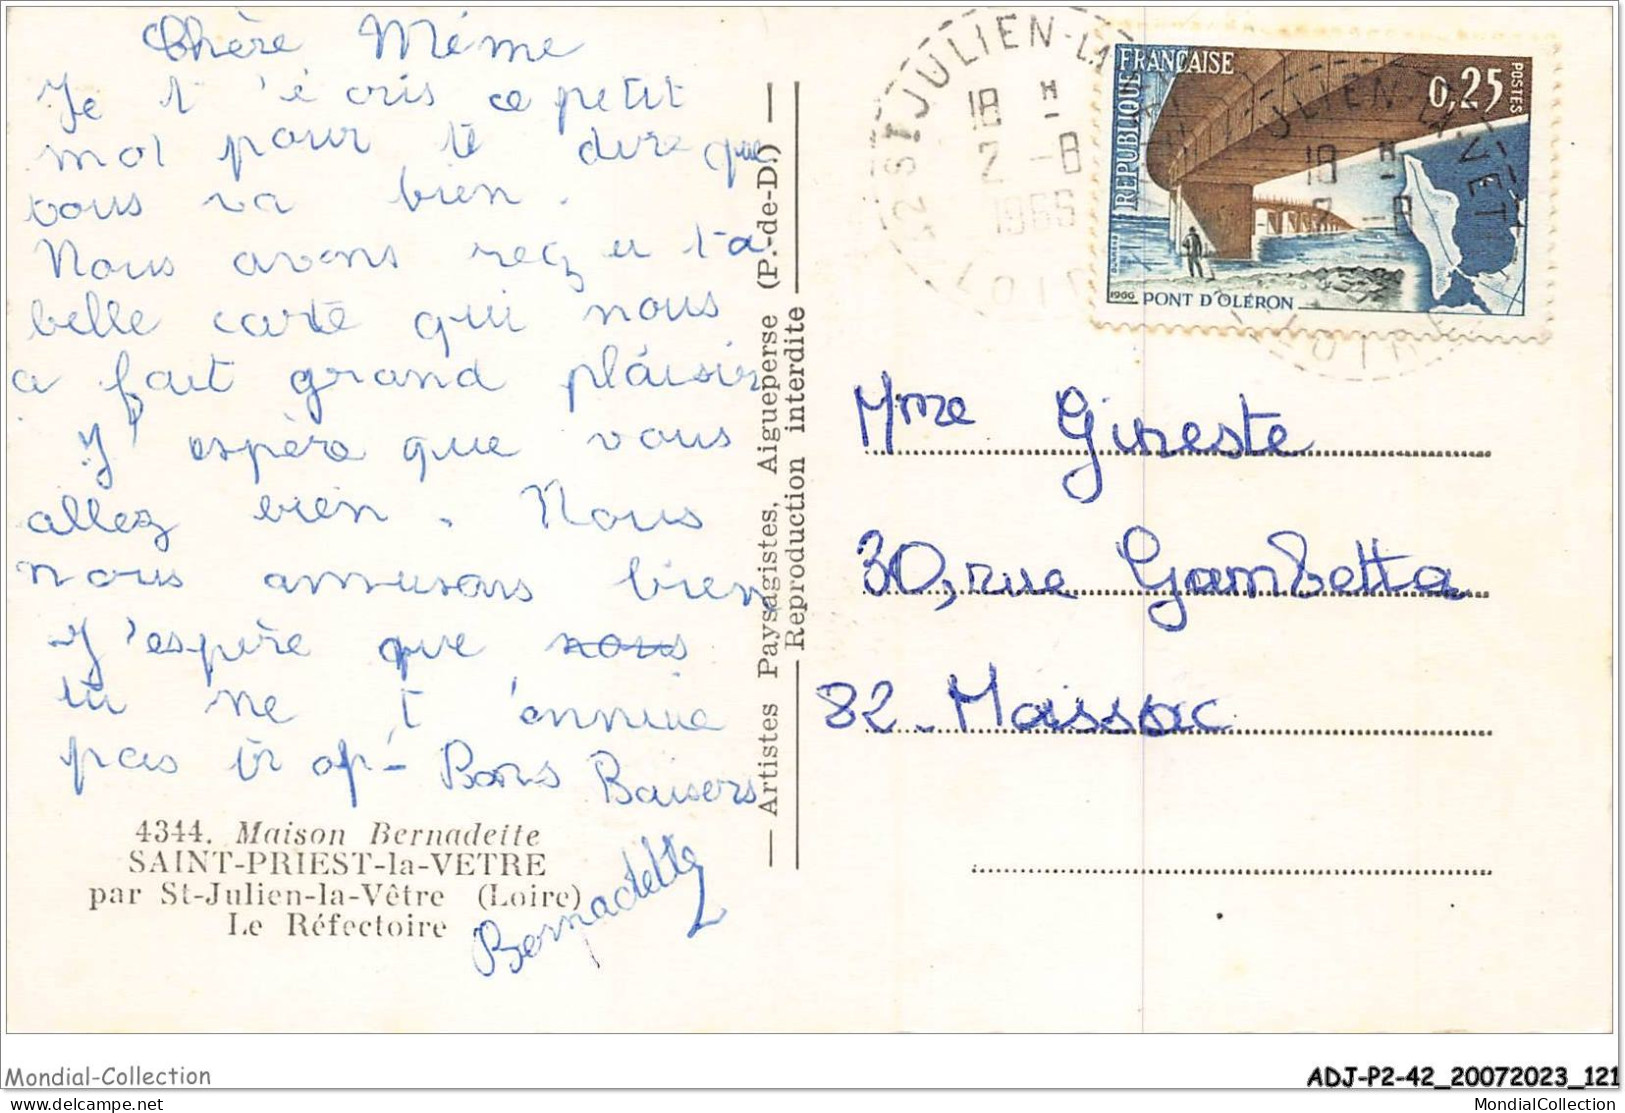 Chère Mémé
Je t'écris ce petit
mot pour te dire que
tous va bien.
Nous avons reçu ta
belle carte qui nous
a fait grand plaisir
J'espère que vous
allez bien. Nous
nous amusons bien
J'espère que nous
tu ne t'ennuie
pas trop - Bons Baisers
Bernadette
4344. Maison Bernadette
SAINT-PRIEST-la-VETRE
par St-Julien-la-Vêtre (Loire)
Le Réfectoire
Artistes Paysagistes, Aigueperse (P.-de-D.)
Reproduction interdite
42 ST JULIEN-LA
18 H
2 -8
1966
LOIRE
REPUBLIQUE FRANÇAISE
0,25 POSTES
1966 PONT D'OLÉRON
JULIEN-LA-VET
18 H
2 -8
Mme Gineste
30, rue Gambetta
82 - Moissac
Mondial-Collection
ADJ-P2-42_20072023_121
delcampe.net
MondialCollection